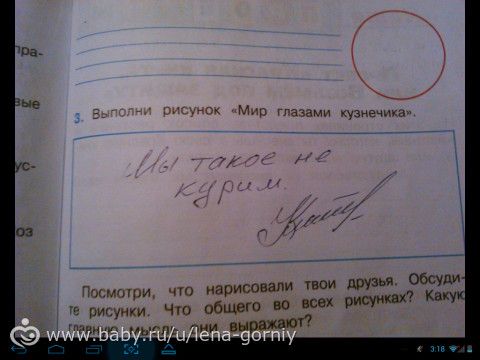 пра-
вые
ус-
оз
3. Выполни рисунок «Мир глазами кузнечика».
Мы такое не
курим.
Посмотри, что нарисовали твои друзья. Обсуди-
те рисунки. Что общего во всех рисунках? Какую
главную мысль они выражают?
www.baby.ru/u/lena-gorniy
3:18